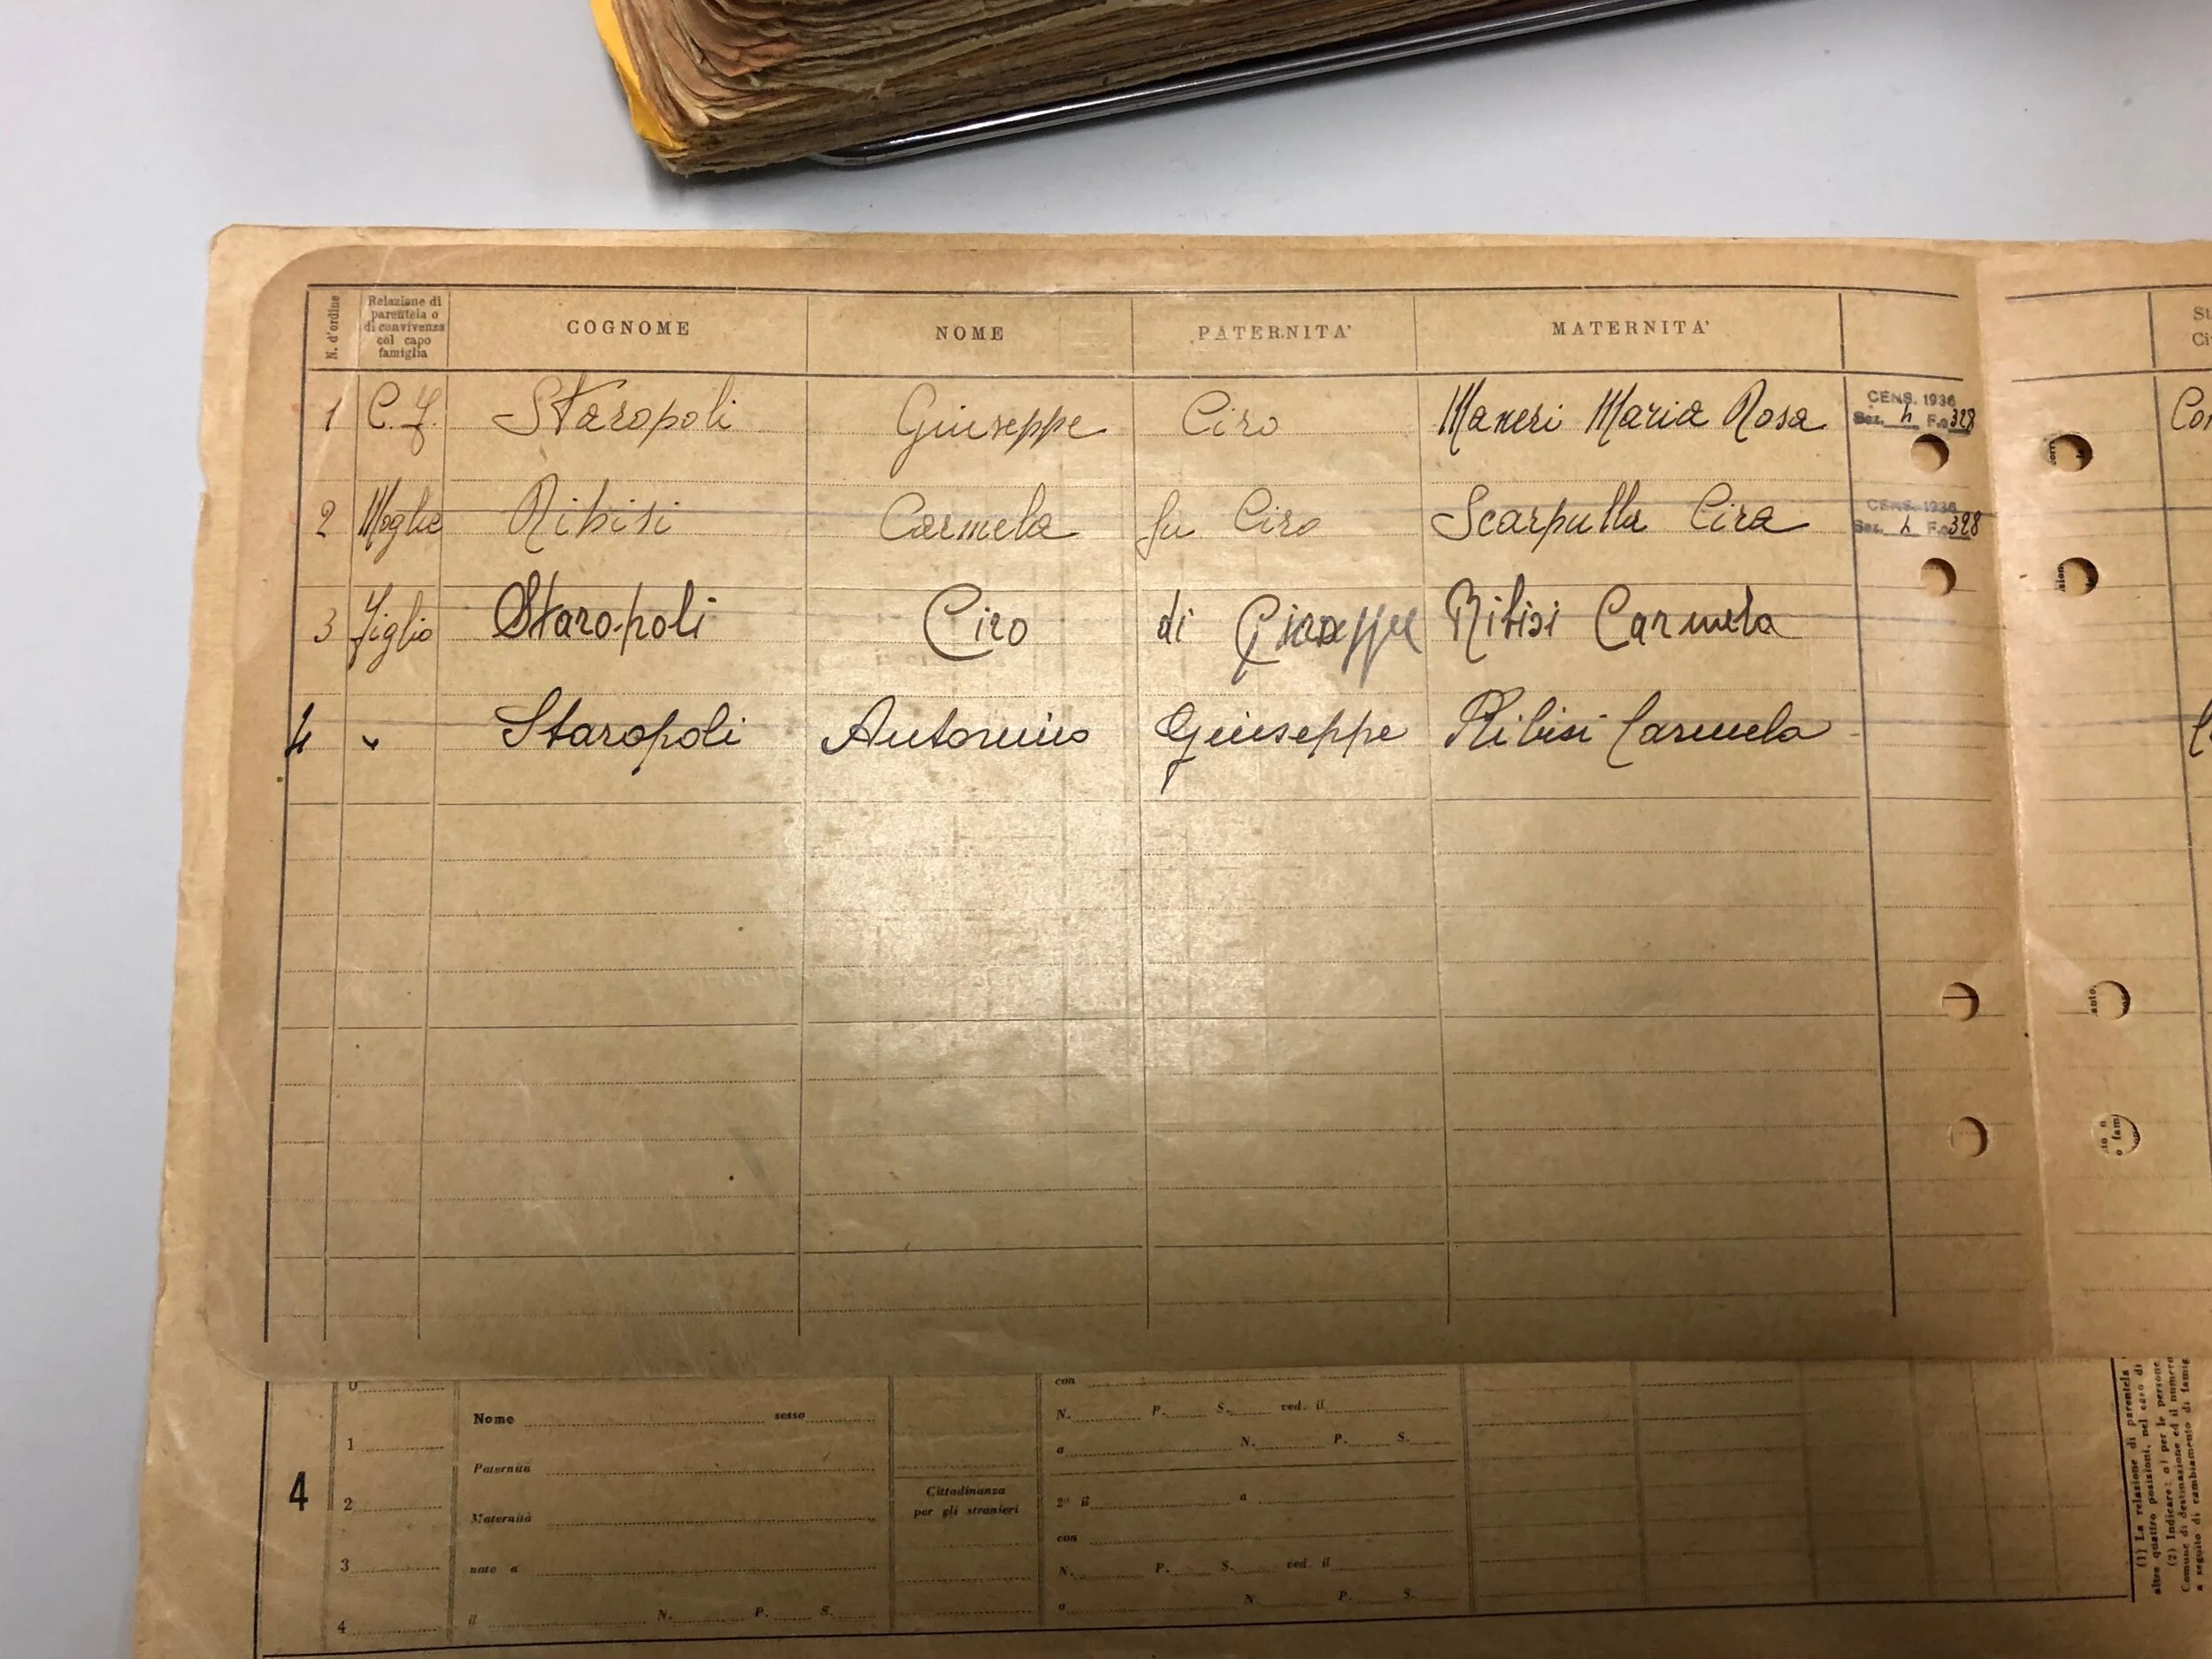 N. d'ordine
Relazione di
parentela o
di convivenza
col capo
famiglia
COGNOME NOME PATERNITA' MATERNITA'
St
Ci
1 C.F. Staropoli Giuseppe Ciro Maneri Maria Rosa
CENS. 1936
Sez. 4 F.o 328
Con
2 Moglie Ribisi Carmela fu Ciro Scarpulla Cira
CENS. 1936
Sez. 4 F.o 328
3 Figlio Staropoli Ciro di Giuseppe Ribisi Carmela
4 " Staropoli Antonino Giuseppe Ribisi Carmela
4
0
1
2
3
4
Nome sesso
Paternità
Maternità
nato a
il N. P. S.
Cittadinanza
per gli stranieri
con
N. P. S. ved. il
a N. P. S.
2° il a
con
N. P. S. ved. il
a N. P. S.
(1) La relazione di parentela
altre quattro posizioni, nel caso di
(2) Indicare: a) per le persone
Comune di destinazione ed il numero
a seguito di cambiamento di famig